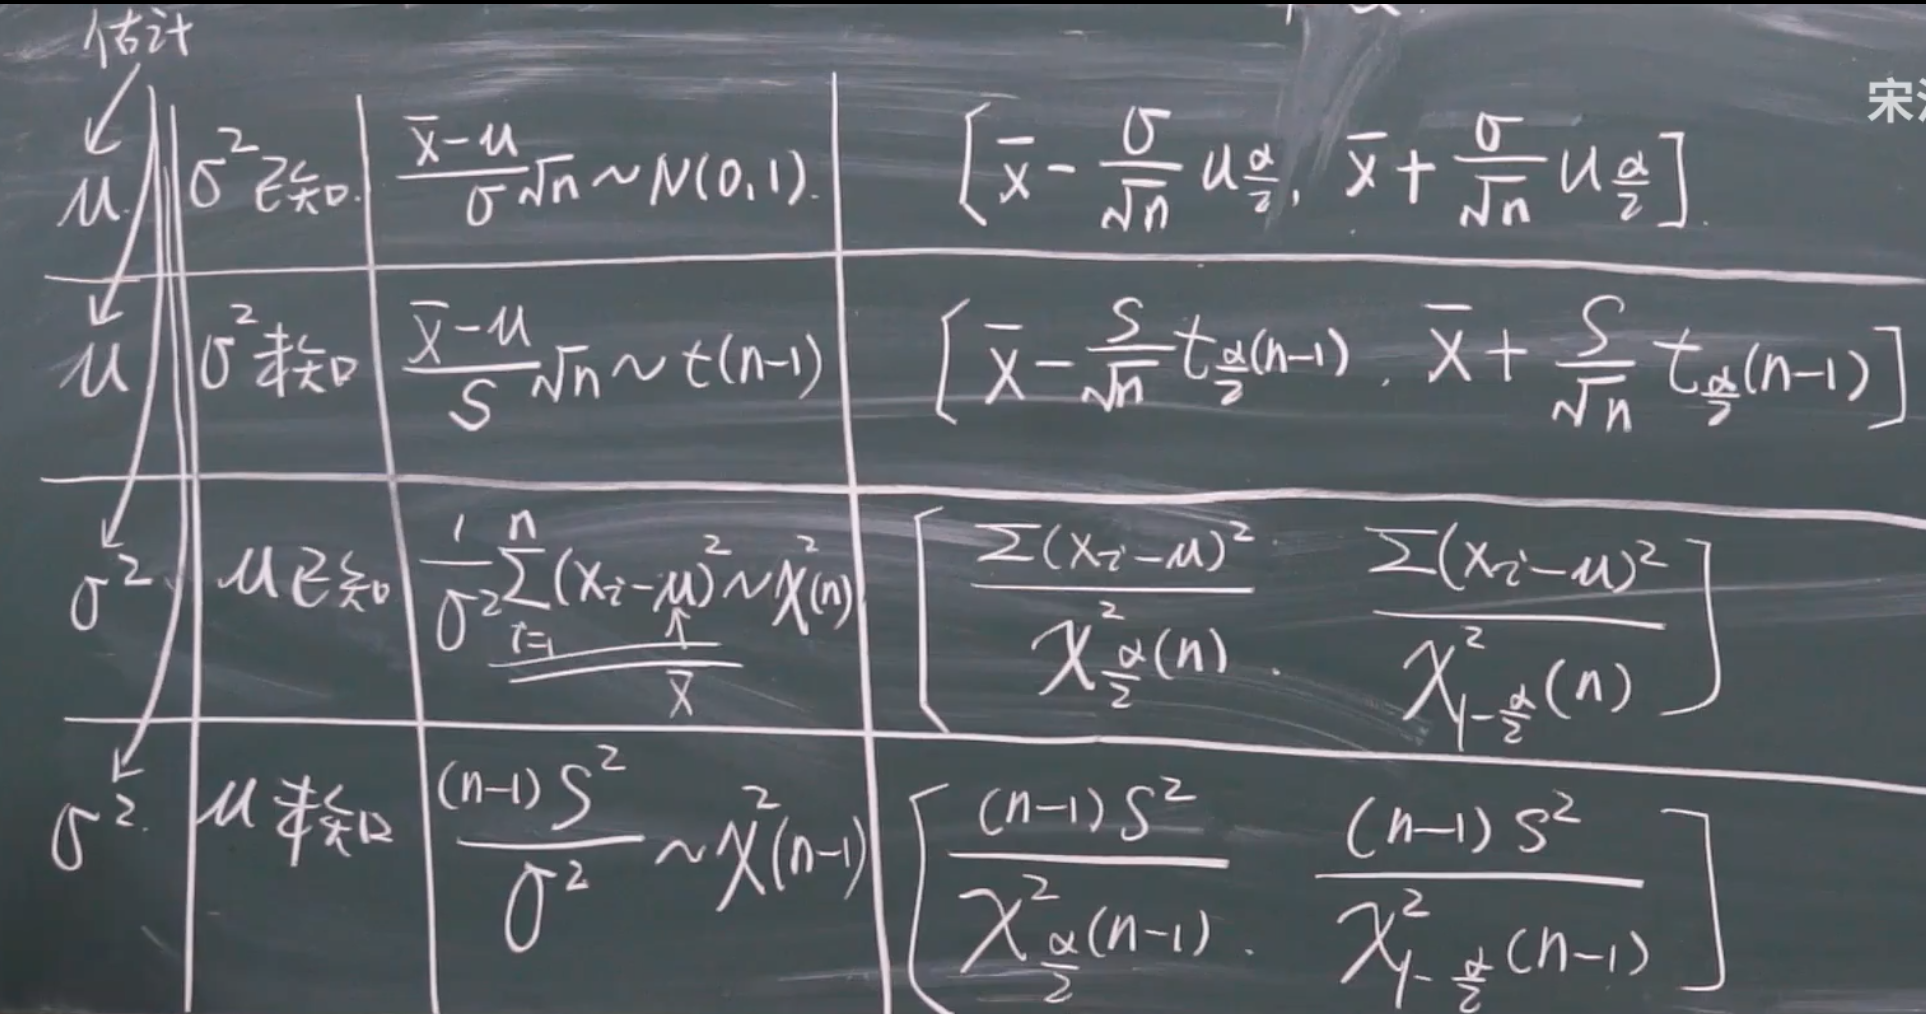 估计
μ. σ² 已知. (x̄-μ)/σ √n ~ N(0,1). [x̄ - σ/√n u_{α/2}, x̄ + σ/√n u_{α/2}].
μ σ² 未知 (x̄-μ)/S √n ~ t(n-1) [x̄ - S/√n t_{α/2}(n-1), x̄ + S/√n t_{α/2}(n-1)]
σ² μ 已知 1/σ² Σ_{i=1}^{n} (x_i-μ)² ~ χ²(n) [Σ(x_i-μ)² / χ²_{α/2}(n), Σ(x_i-μ)² / χ²_{1-α/2}(n)]
x̄
σ². μ 未知 (n-1)S²/σ² ~ χ²(n-1) [(n-1)S² / χ²_{α/2}(n-1), (n-1)S² / χ²_{1-α/2}(n-1)]
宋